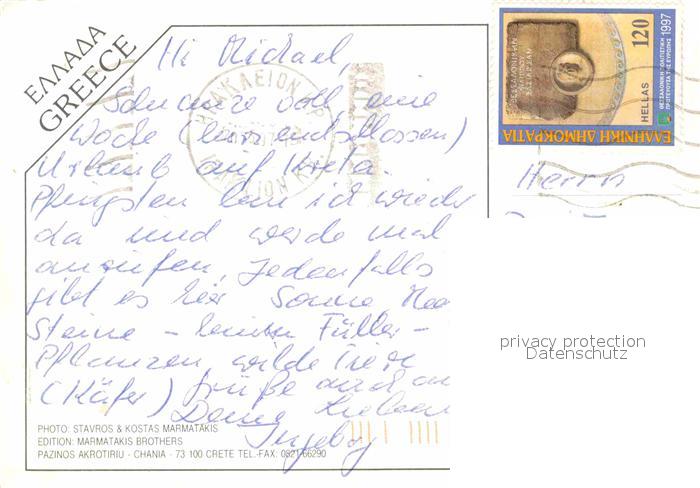 ΕΛΛΑΔΑ
GREECE
Hi Michael,
eine
Woche (kurzentschlossen)
Urlaub auf Kreta.
Pfingsten bin ich wieder
da und werde mal
anrufen, Jedenfalls
gibt es hier Sonne Mee
Steine – keinen Füller –
Pflanzen, wilde Tiere
(Käfer) Grüße auch an
Deine Lieben
Ingeborg
PHOTO: STAVROS & KOSTAS MARMATAKIS
EDITION: MARMATAKIS BROTHERS
PAZINOS AKROTIRIU - CHANIA - 73 100 CRETE TEL.-FAX: 0821/66290
120
HELLAS
1997
ΕΛΛΗΝΙΚΗ ΔΗΜΟΚΡΑΤΙΑ
Herrn
privacy protection
Datenschutz